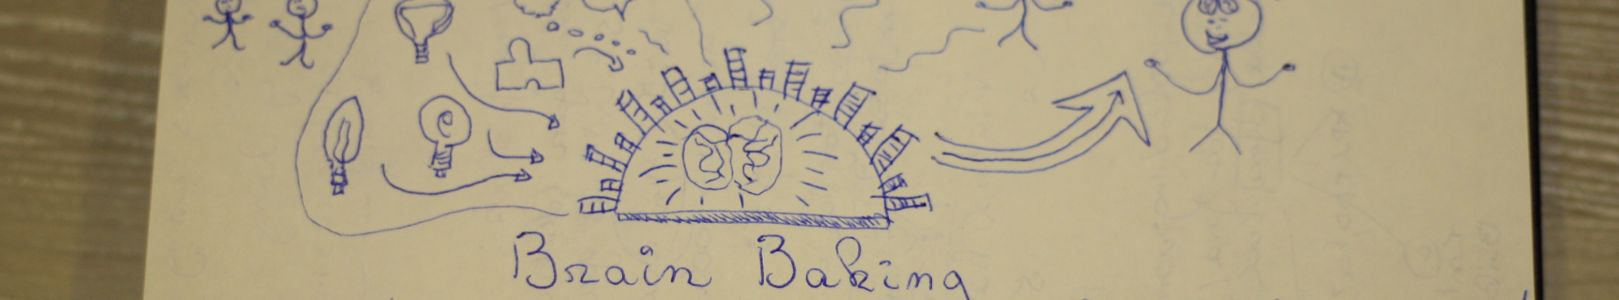 Brain Baking